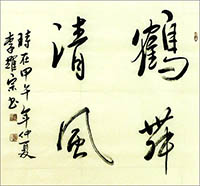 鶴舞
清風
時在甲午年仲夏
李耀宗书